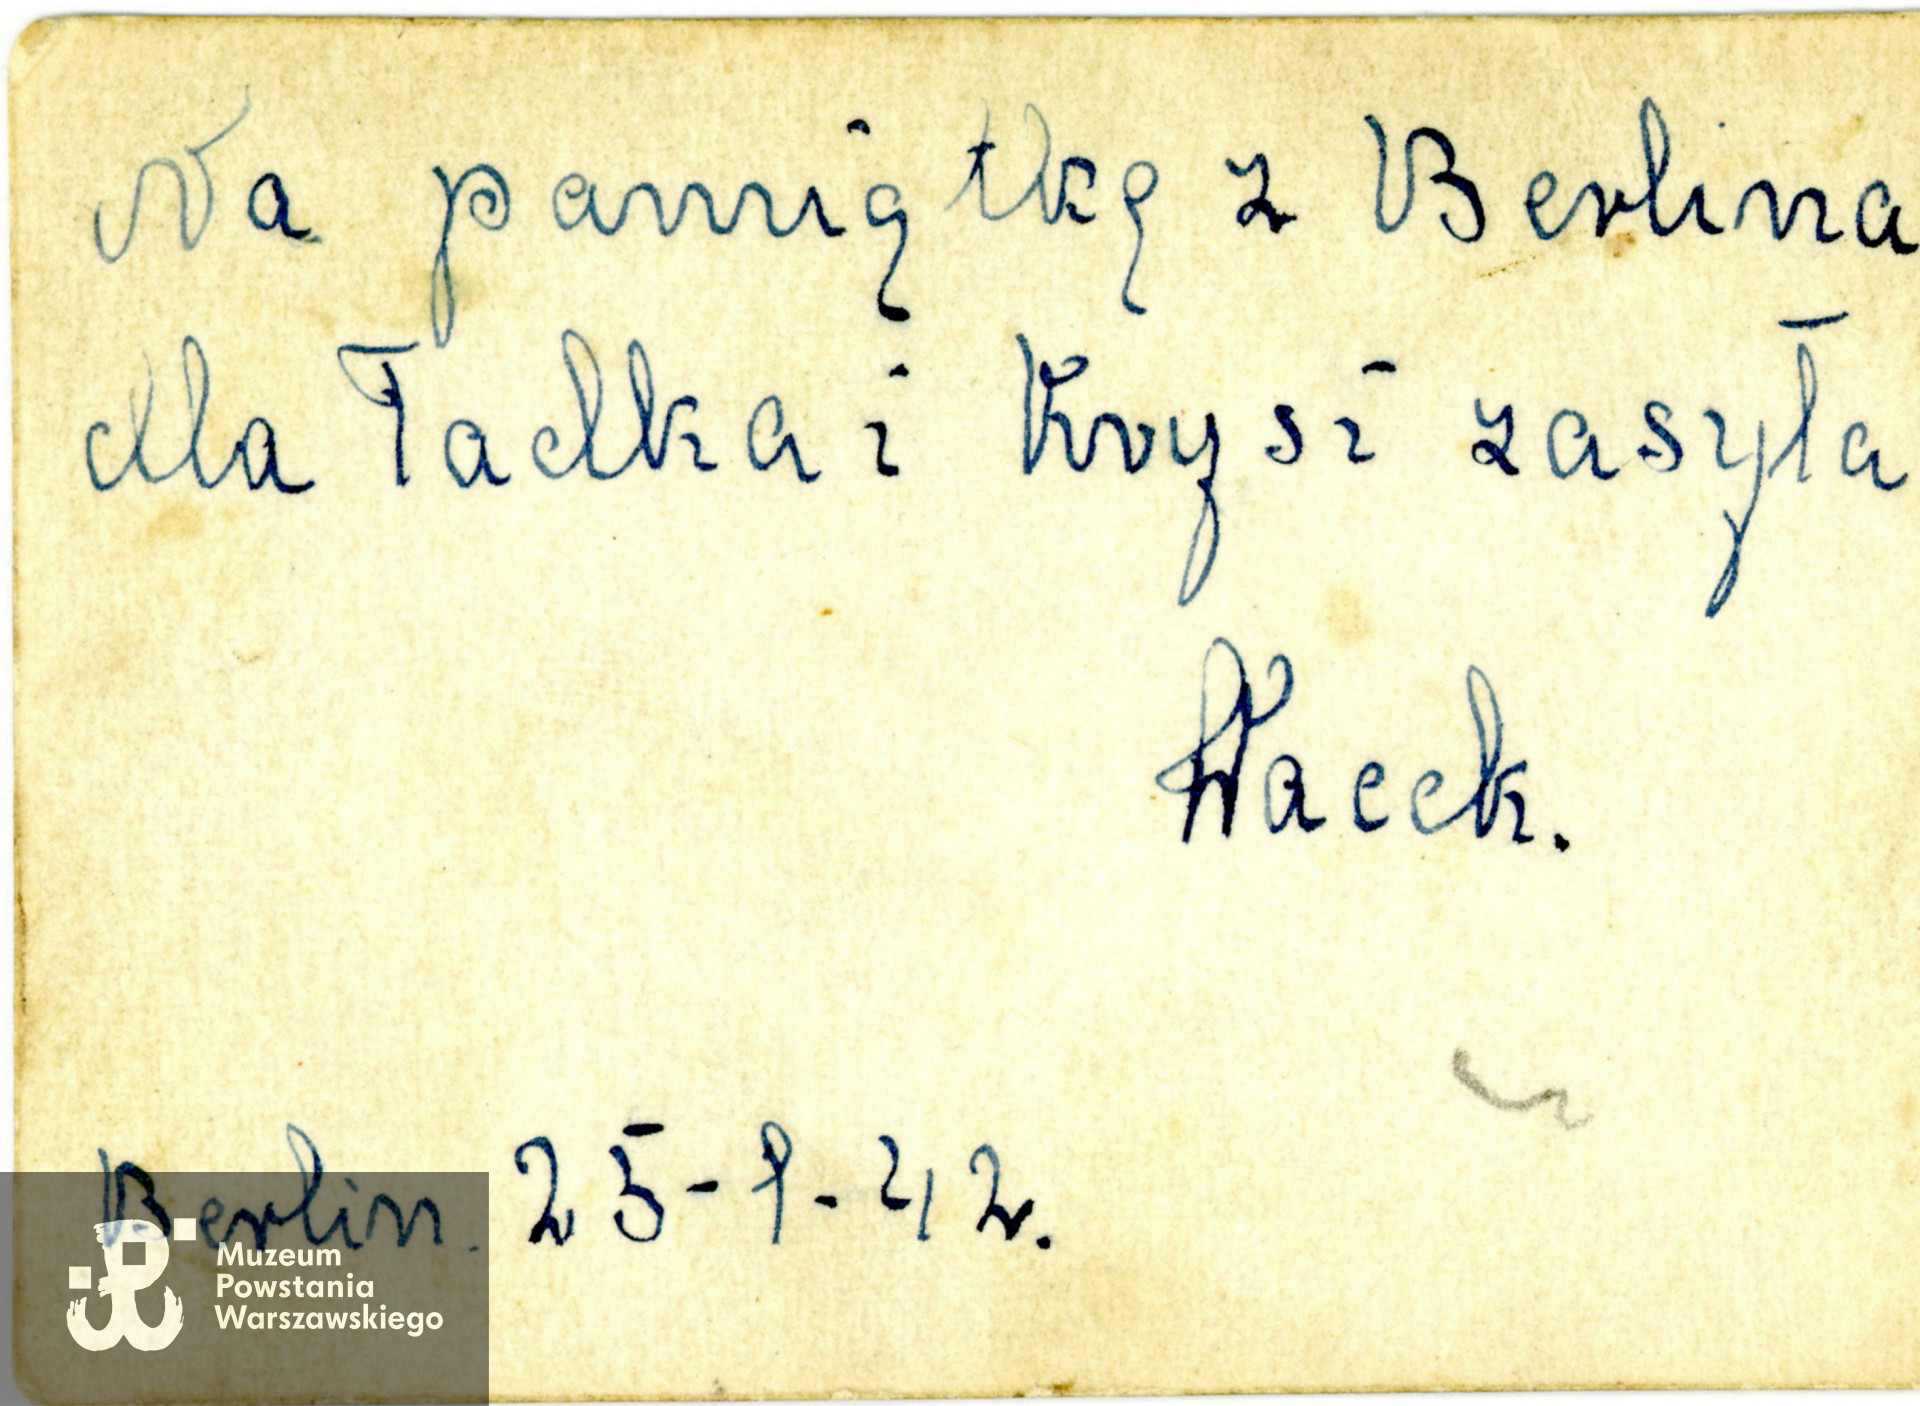 Na pamiątkę z Berlina
dla Tadka i Krysi zasyła
Wacek.
Berlin. 25-9-42.
Muzeum
Powstania
Warszawskiego